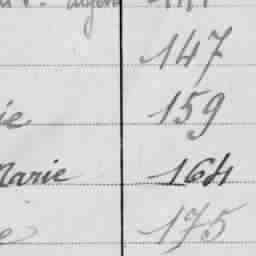 147
159
Marie 164
175